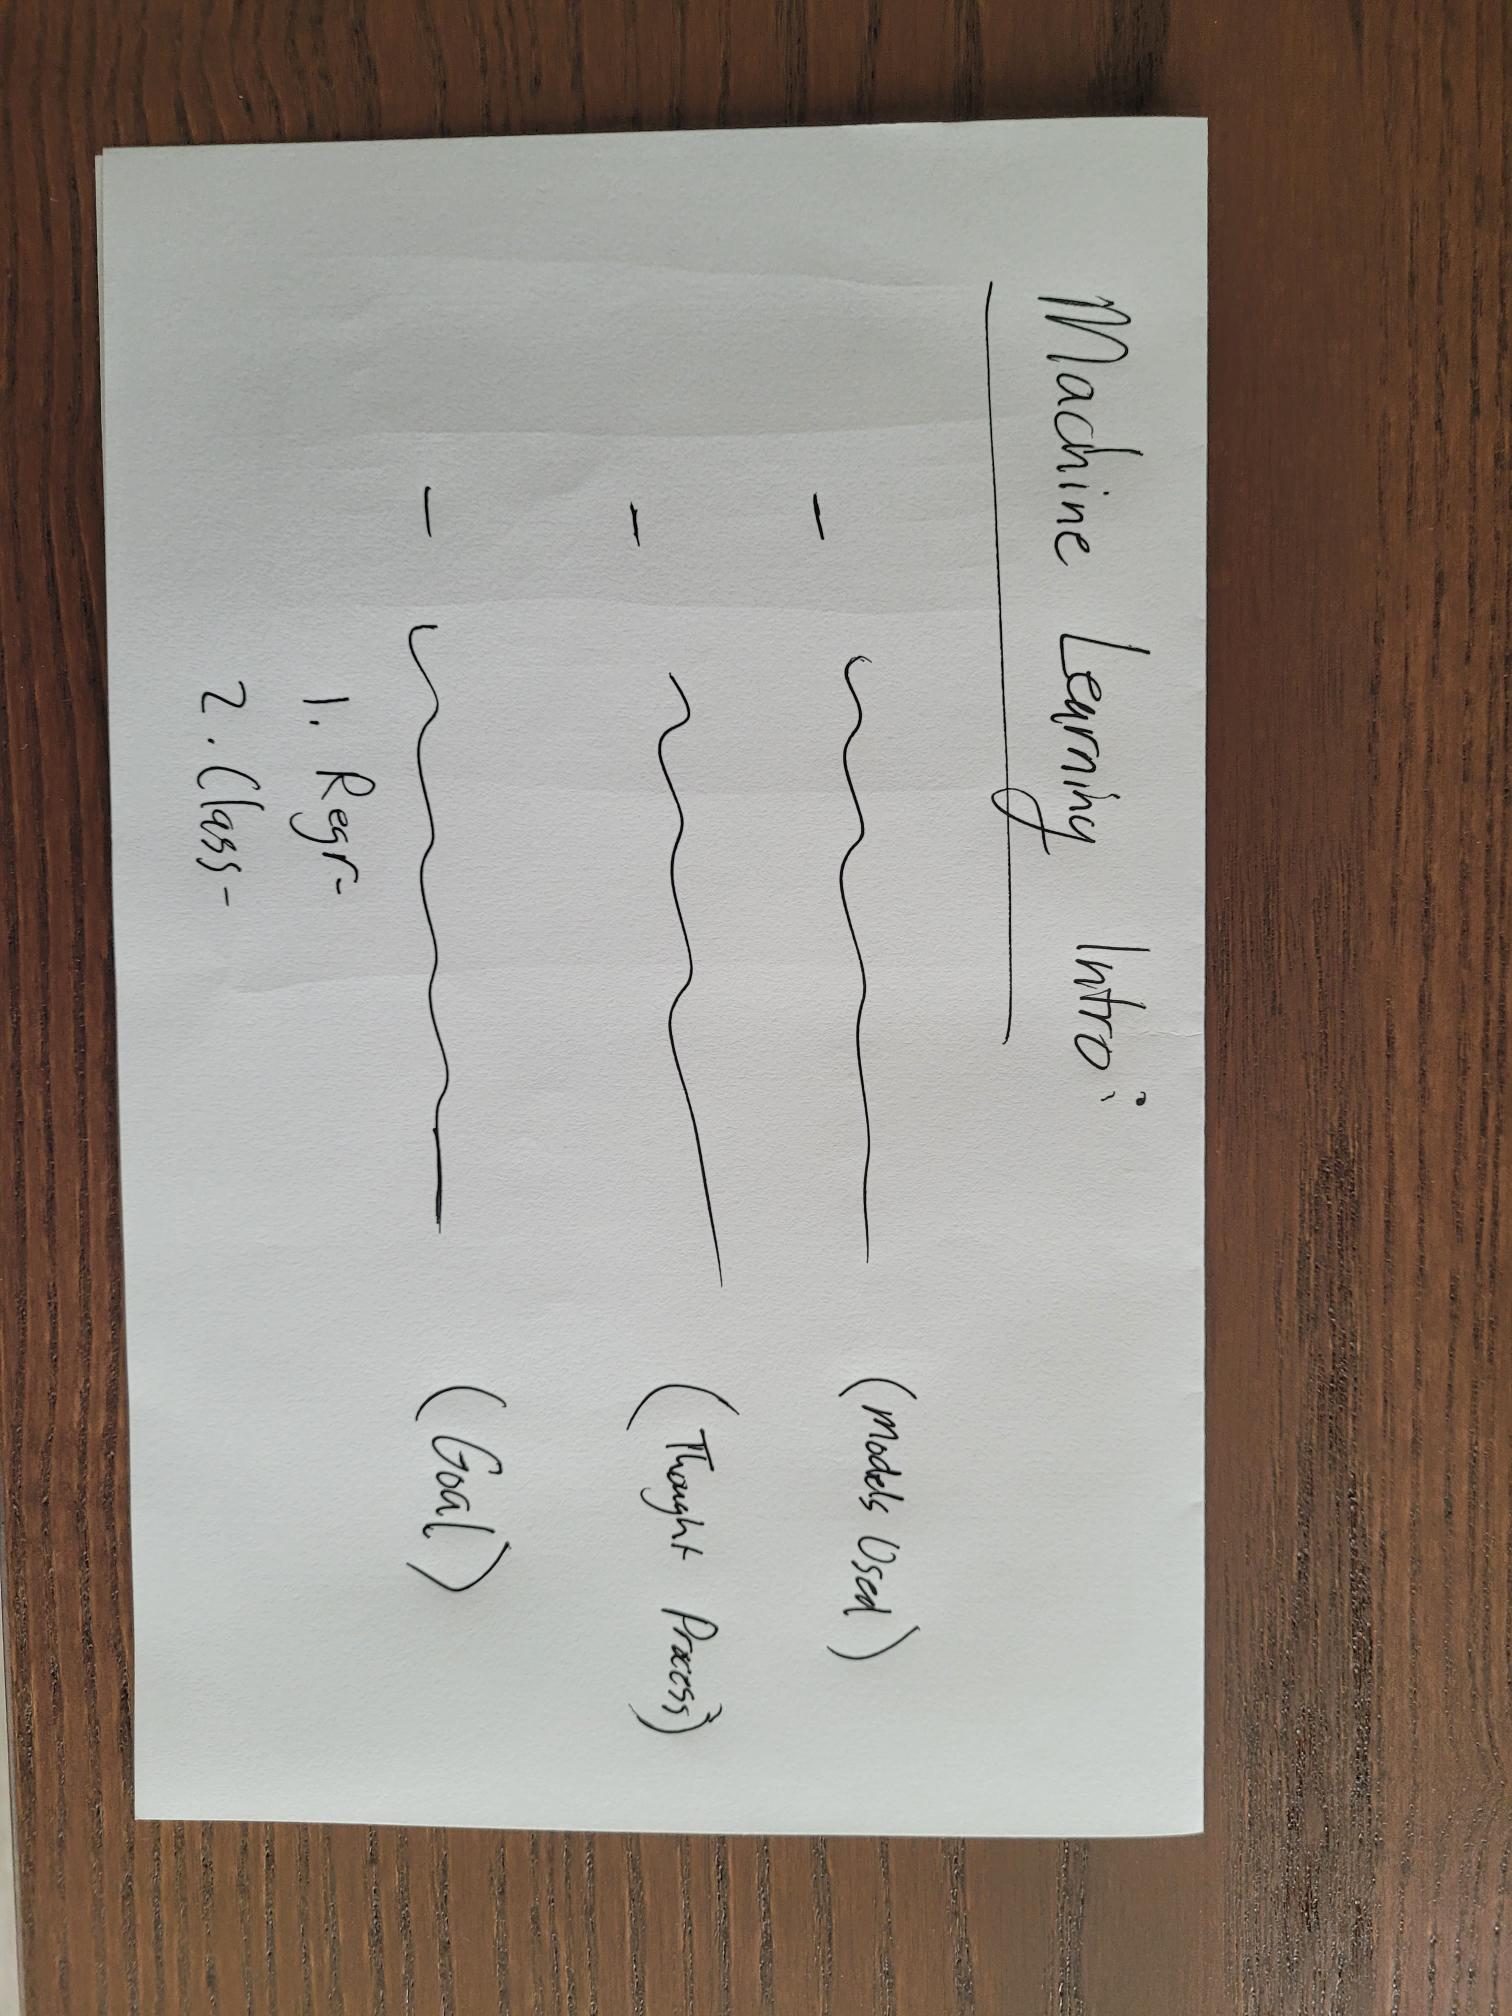 Machine Learning Intro:
- (Models Used)
- (Thought Process)
- (Goal)
1. Regr-
2. Class-